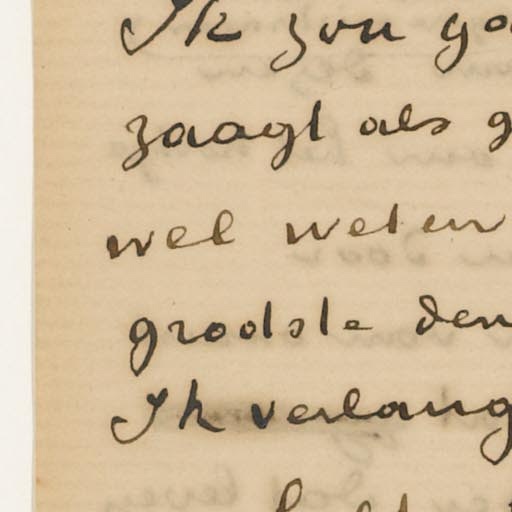 Ik zou ga
zaagt als g
wel weten
grootste den
Ik verlang